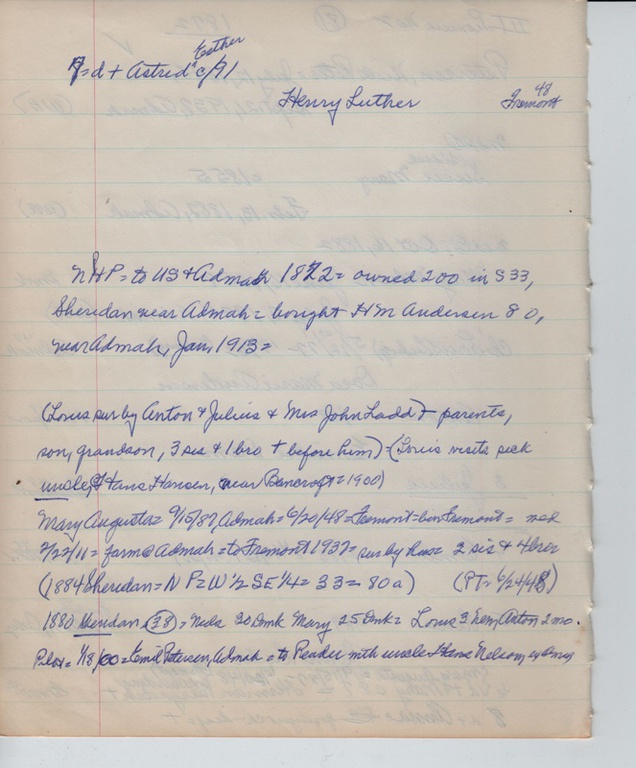 Esther
7=d + Astrid" c/91
Henry Luther
48
Fremont
NHP= to US & Admah 1872= owned 200 in S 33,
Sheridan near Admah= bought HM Andersen 80,
near Admah, Jan, 1913=
(Louis sur by Anton & Julius & Mrs John Ladd + parents,
son, grandson, 3 sis & 1 bro + before him) = (Louis visits sick
uncle, Hans Hansen, near Bancroft= 1900)
Mary Augusta= 9/15/87, Admah= 6/20/48= Fremont= bur Fremont= md
2/22/11= farm@ Admah= to Fremont 1937= sur by hus= 2 sis & 4 bros
(1884 Sheridan= N P= W½ SE¼= 33= 80a) (PT= 6/24/48)
1880 Sheridan (38) = Nels 30 Dmk Mary 25 Dmk= Louis 3 Neb, Anton 2 mo.
Pilot= 1/18/00= Emil Petersen, Admah= to Pender with uncle Hans Nelson,